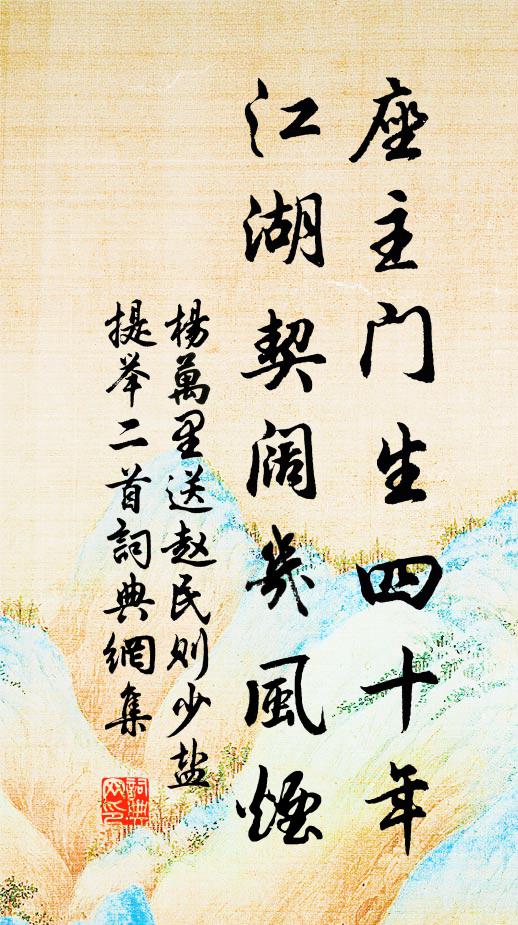 座主门生四十年
江湖契阔几風煙
楊萬里送赵民则少盐
提举二首詞典網集
詞典网印